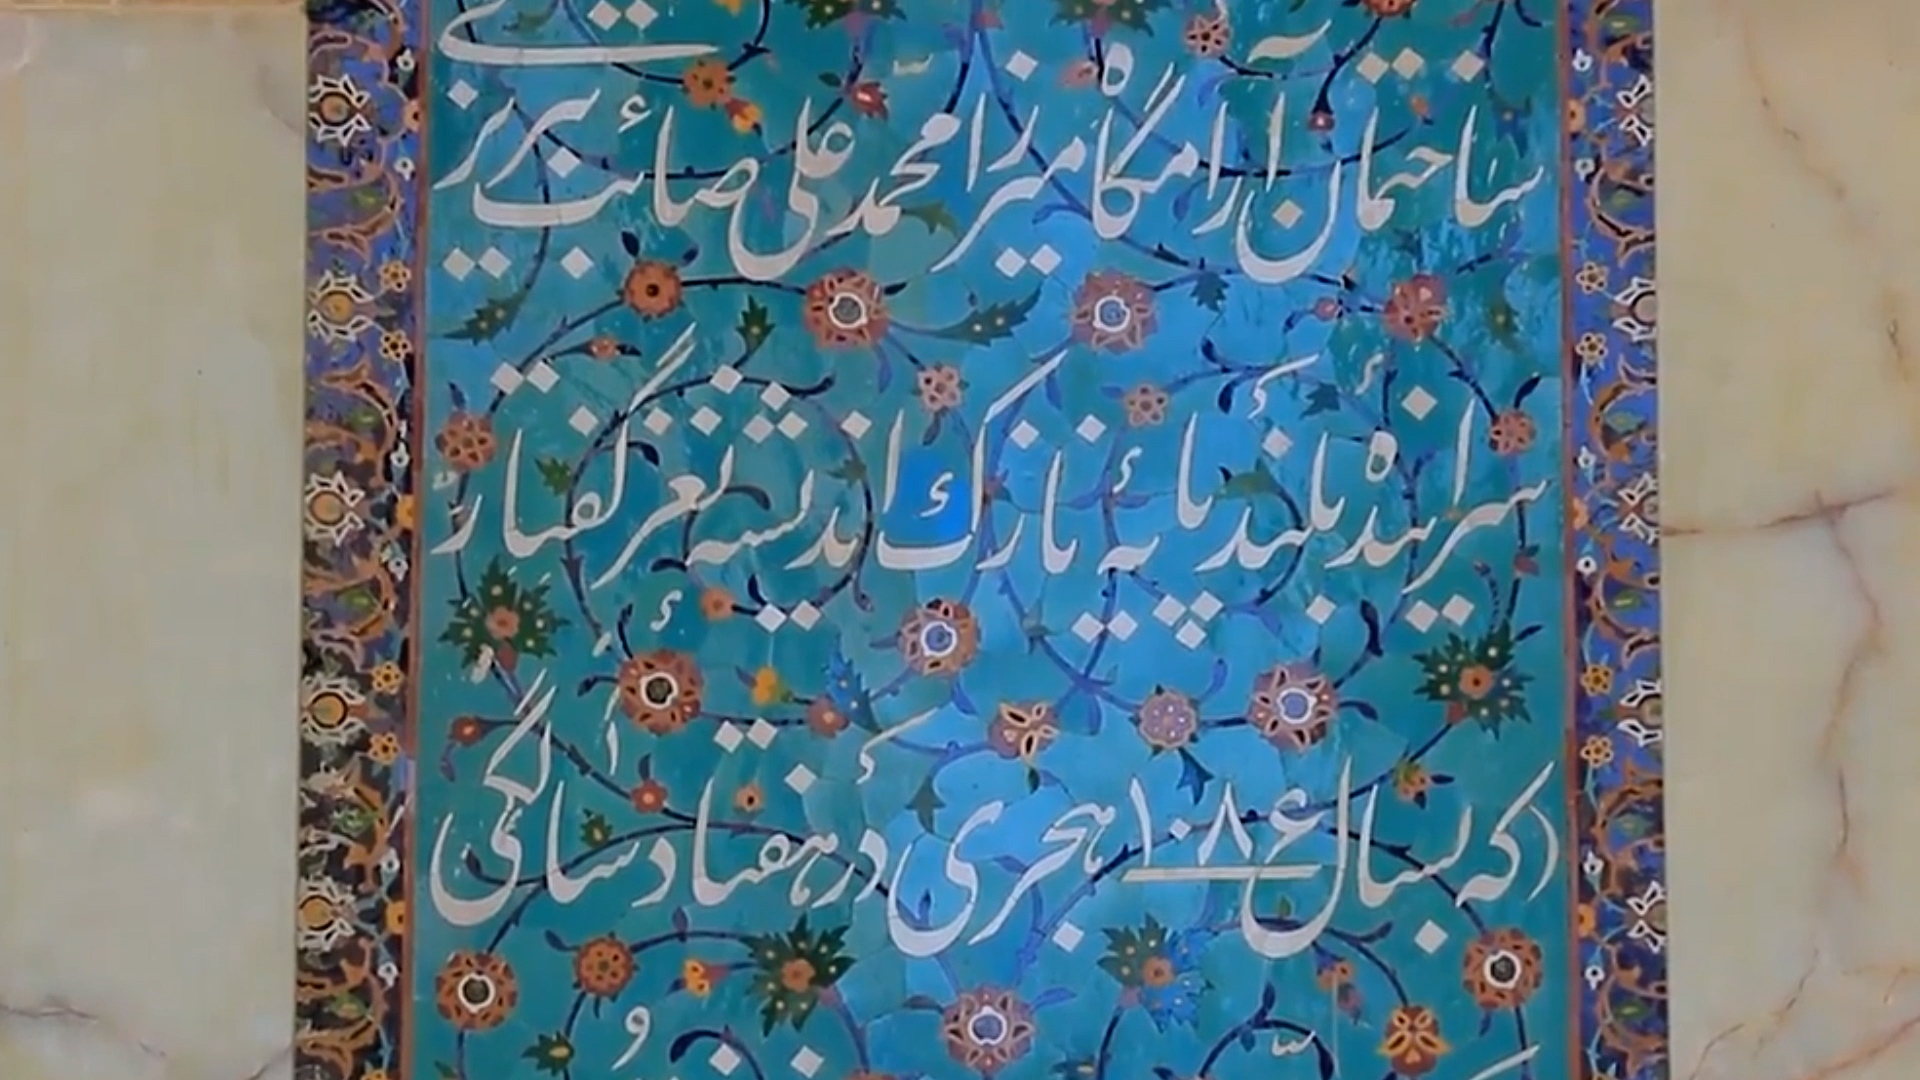 ساختمان آرامگاه میرزا محمد علی صائب تبریزی
سرایندهٔ بلند پایهٔ نازك اندیشهٔ نغز گفتار
(که بسال ۱۰۸۶ هجری در هفتاد سالگی